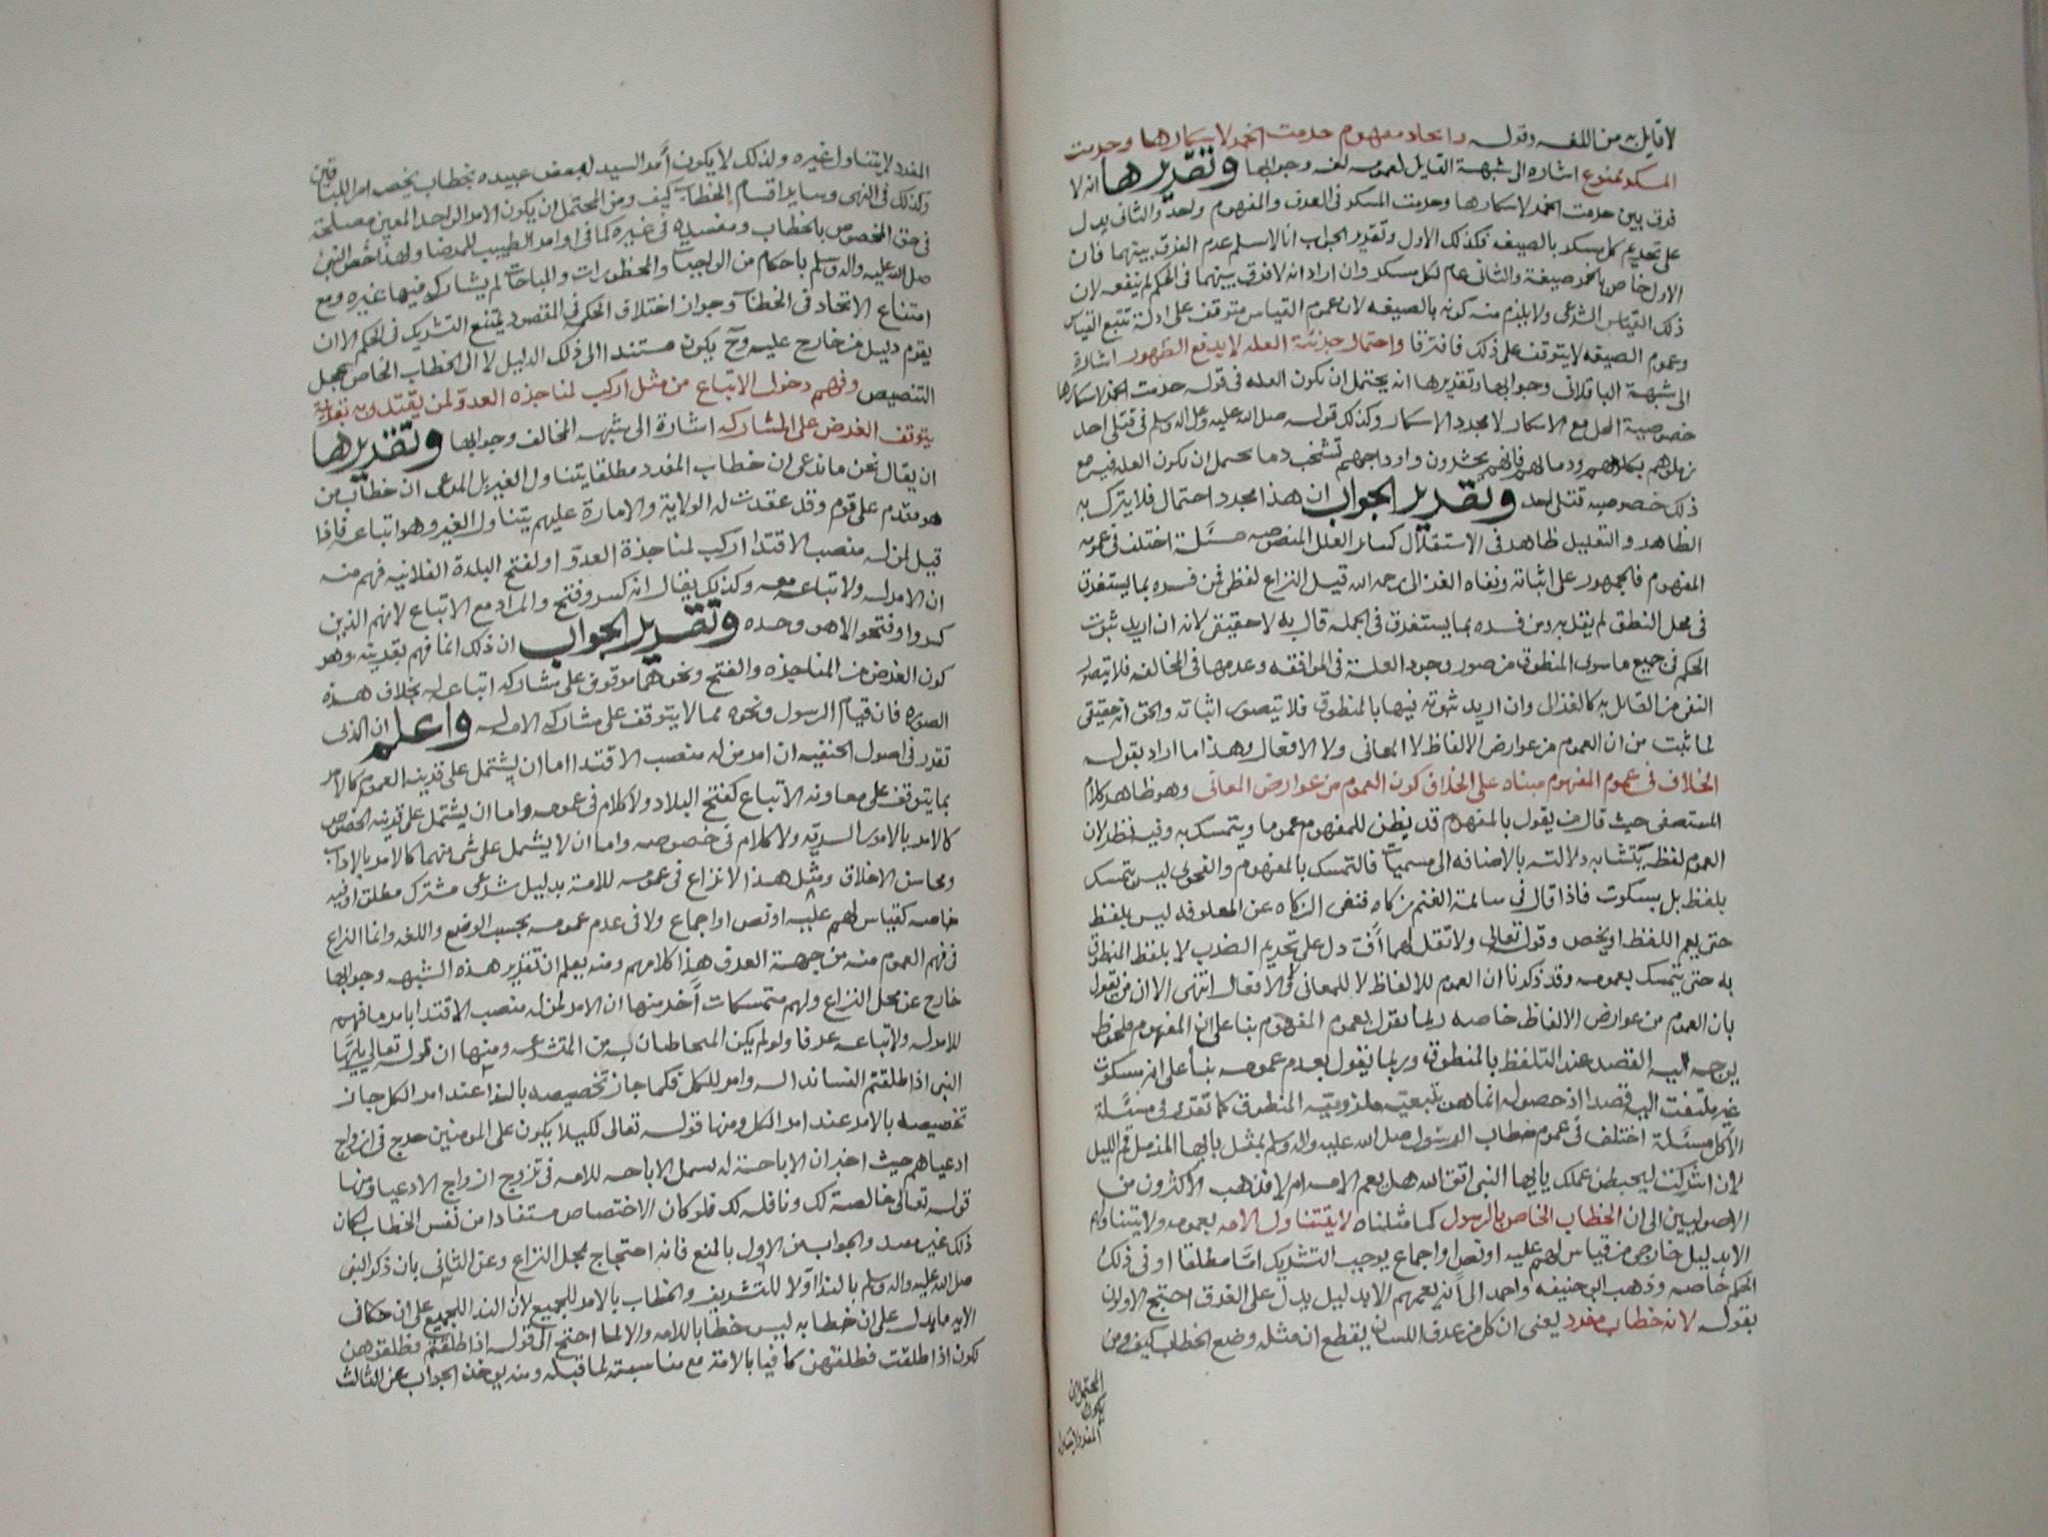 لا قايل به من اللغه وقوله واتحاد مفهوم حرمت الخمر لاسكارها وحرمت
المسكر ممنوع اشاره الى شبهة القايل لعمومه لغه وجوابها وتقريرها انه لا
فرق بين حرمت الخمر لاسكارها وحرمت المسكر فى العرف والمفهوم واحد والثانى يدل
على تحريم كل مسكر بالصيغه فكذلك الاول وتقرير الجواب انا لا نسلم عدم الفرق بينهما فان
الاول خاص بالخمر صيغة والثانى عام لكل مسكر وان اراد انه لا فرق بينهما فى الحكم لم ينفعه لان
ذلك القياس الشرعى ولا يلزم منه كونه بالصيغه لان عموم القياس متوقف على ادلة تتبع القياس
وعموم الصيغه لا يتوقف على ذلك فافترقا واحتمال جزئية العله لا يدفع الظهور اشارة
الى شبهة الباقلانى وجوابها وتقريرها انه يحتمل ان تكون العله فى قوله حرمت الخمر لاسكارها
خصوصية المحل مع الاسكار لا مجرد الاسكار وكذلك قوله صلى الله عليه وعلى اله وسلم فى قتلى احد
زملوهم بكلومهم ودمائهم فانهم يحشرون واوداجهم تشخب دما يحتمل ان تكون العله فيه مع
ذلك خصوصيه قتلى احد وتقرير الجواب ان هذا مجرد احتمال فلا يترك به
الظاهر والتعليل ظاهر فى الاستقلال كساير العلل المنصوصه مسئلة اختلف فى عموم
المفهوم فالجمهور على اثباته ونفاه الغزالى رحمه الله قيل النزاع لفظى فمن فسره بما يستغرق
فى محل النطق لم يقل به ومن فسره بما يستغرق فى الجمله قال به لا حقيقى لانه ان اريد ثبوت
الحكم فى جميع ما سوى المنطوق من صور وجود العلة فى الموافقه وعدمها فى المخالفه فلا يتصور
النفى من القايل به كالغزالى وان اريد ثبوته فيها بالمنطوق فلا يتصور اثباته والحق انه حقيقى
لما ثبت من ان العموم من عوارض الالفاظ لا المعانى ولا الافعال وهذا ما اراد بقوله
الخلاف فى عموم المفهوم مبناه على الخلاف كون العموم من عوارض المعانى وهو ظاهر كلام
المستصفى حيث قال من يقول بالمفهوم قد يظن للمفهوم عموما ويتمسك به وفيه نظر لان
العموم لفظ تتشابه دلالته بالاضافه الى مسميات فالتمسك بالمفهوم والفحوى ليس بتمسك
بلفظ بل بسكوت فاذا قال فى سائمة الغنم زكاه فنفى الزكاه عن المعلوفه ليس بلفظ
حتى يعم اللفظ او يخص وقوله تعالى ولا تقل لهما أف دل على تحريم الضرب لا بلفظ المنطوق
به حتى يتمسك بعمومه وقد ذكرنا ان العموم للالفاظ لا للمعانى ولا الافعال انتهى الا ان من يقول
بان العموم من عوارض الالفاظ خاصه ربما يقول بعموم المفهوم بنا على ان المفهوم ملحوظ
يوجه اليه القصد عند التلفظ بالمنطوق وربما يقول بعدم عمومه بنا على انه مسكوت
غير ملتفت اليه قصدا اذ حصوله انما هو بتبعية ملزوميه المنطوق كما تقدم فى مسئلة
الاكل مسئلة اختلف فى عموم خطاب الرسول صلى الله عليه واله وسلم بمثل يا ايها المزمل قم الليل
لان اشركت ليحبطن عملك يا ايها النبى اتق الله هل يعم الامه ام لا فذهب الاكثرون من
الاصوليين الى ان الخطاب الخاص بالرسول كما مثلناه لا يتناول الامه بعمومه ولا يتناولهم
الا بدليل خارجى من قياس لهم عليه او نص او اجماع يوجب التشريك اما مطلقا او فى ذلك
الحكم خاصه وذهب ابو حنيفه واحمد الى أنه يعمهم الا بدليل يدل على الفرق احتج الاولون
بقوله لانه خطاب مفرد يعنى ان كل من عرف اللسان يقطع ان مثله وضع الخطاب كيف ومن
المحتمل ان
يكون
المفرد لا يتناول
المفرد لا يتناول غيره ولذلك لا يكون أمر السيد لبعض عبيده بخطاب يخص امر اللباقين
وكذلك فى النهى وساير اقسام الخطاب كيف ومن المحتمل ان يكون الامر الواحد المعين مصلحة
فى حق المخصوص بالخطاب ومفسده فى غيره كما فى اوامر الطبيب للمرضا ولهذا خص النبى
صلى الله عليه واله وسلم باحكام من الواجبات والمحظورات والمباحات لم يشاركه فيها غيره ومع
امتناع الاتحاد فى الخطاب وجواز اختلاف الحكم فى المقصود يمتنع التشريك فى الحكم الا ان
يقوم دليل من خارج عليه وح يكون مستندا الى ذلك الدليل لا الى الخطاب الخاص بمحل
التنصيص وفهم دخول الاتباع من مثل اركب لمناجزه العدو لمن يقتدون به بقرينة
يتوقف الغرض على المشاركه اشارة الى شبهه المخالف وجوابها وتقريرها
ان يقال نحن ما ندعى ان خطاب المفرد مطلقا يتناول الغير بل المدعى ان خطاب من
هو مقدم على قوم وقد عقدت له الولاية والامارة عليهم يتناول الغير وهو اتباعه فاذا
قيل لمن له منصب الاقتدا اركب لمناجزة العدو او لفتح البلدة الفلانيه فهم منه
ان الامر له ولاتباعه معه وكذلك يقال انه كسر وفتح والمراد مع الاتباع لانهم الذين
كسروا وفتحوا لا هو وحده وتقرير الجواب ان ذلك انما فهم بقرينه وهو
كون الغرض من المناجزه والفتح ونحوهما موقوف على مشاركه اتباعه له بخلاف هذه
الصوره فان قيام الرسول ونحوه مما لا يتوقف على مشاركه الامه له واعلم ان الذى
تقرر فى اصول الحنفيه ان امر من له منصب الاقتدا اما ان يشتمل على قرينه العموم كالامر
بما يتوقف على معاونه الاتباع كفتح البلاد ولا كلام فى عمومه واما ان يشتمل على قرينه الخصوص
كالامر بالامور السريه ولا كلام فى خصوصه واما ان لا يشمل على شئ منهما كالامر بالاداب
ومحاسن الاخلاق ومثل هذا لا نزاع فى عمومه للامة بدليل شرعى مشترك مطلق او فيه
خاصه كقياس لهم عليه او نص او اجماع ولا فى عدم عمومه بحسب الوضع واللغه وانما النزاع
فى فهم العموم منه من جهة العرف هذا كلامهم ومنه يعلم ان تقرير هذه الشبهه وجوابها
خارج عن محل النزاع ولهم متمسكات أخر منها ان الامر لمن له منصب الاقتدا بامر ما فهم
للامر له ولاتباعه عرفا ولو لم يكن المخاطبان به من المتشرعه ومنها ان قوله تعالى يايها
النبى اذا طلقتم النسا ندا له وامر للكل فكما جاز تخصيصه بالندا عند امر الكل جاز
تخصيصه بالامر عند امر الكل ومنها قوله تعالى لكيلا يكون على المومنين حرج فى ازواج
ادعياهم حيث اخبر ان الاباحة له لشمل الاباحه للامه فى تزوج ازواج الادعيا ومنها
قوله تعالى خالصة لك ونافله لك فلو كان الاختصاص مستفادا من نفس الخطاب لكان
ذلك غير مفيد والجواب عن الاول بالمنع فانه احتجاج بمحل النزاع وعن الثانى بان ذكر النبى
صلى الله عليه واله وسلم بالندا اولا للتشريف والخطاب بالامر للجميع لأن الندا للجميع على ان فى
الايه ما يدل على ان خطابه ليس خطابا للامه والا لما احتج الى قوله اذا طلقتم فطلقوهن
لكون اذا طلقت فطلقهن كافيا بالامة مع مناسبته لما قبله ومنه يوخذ الجواب عن الثالث